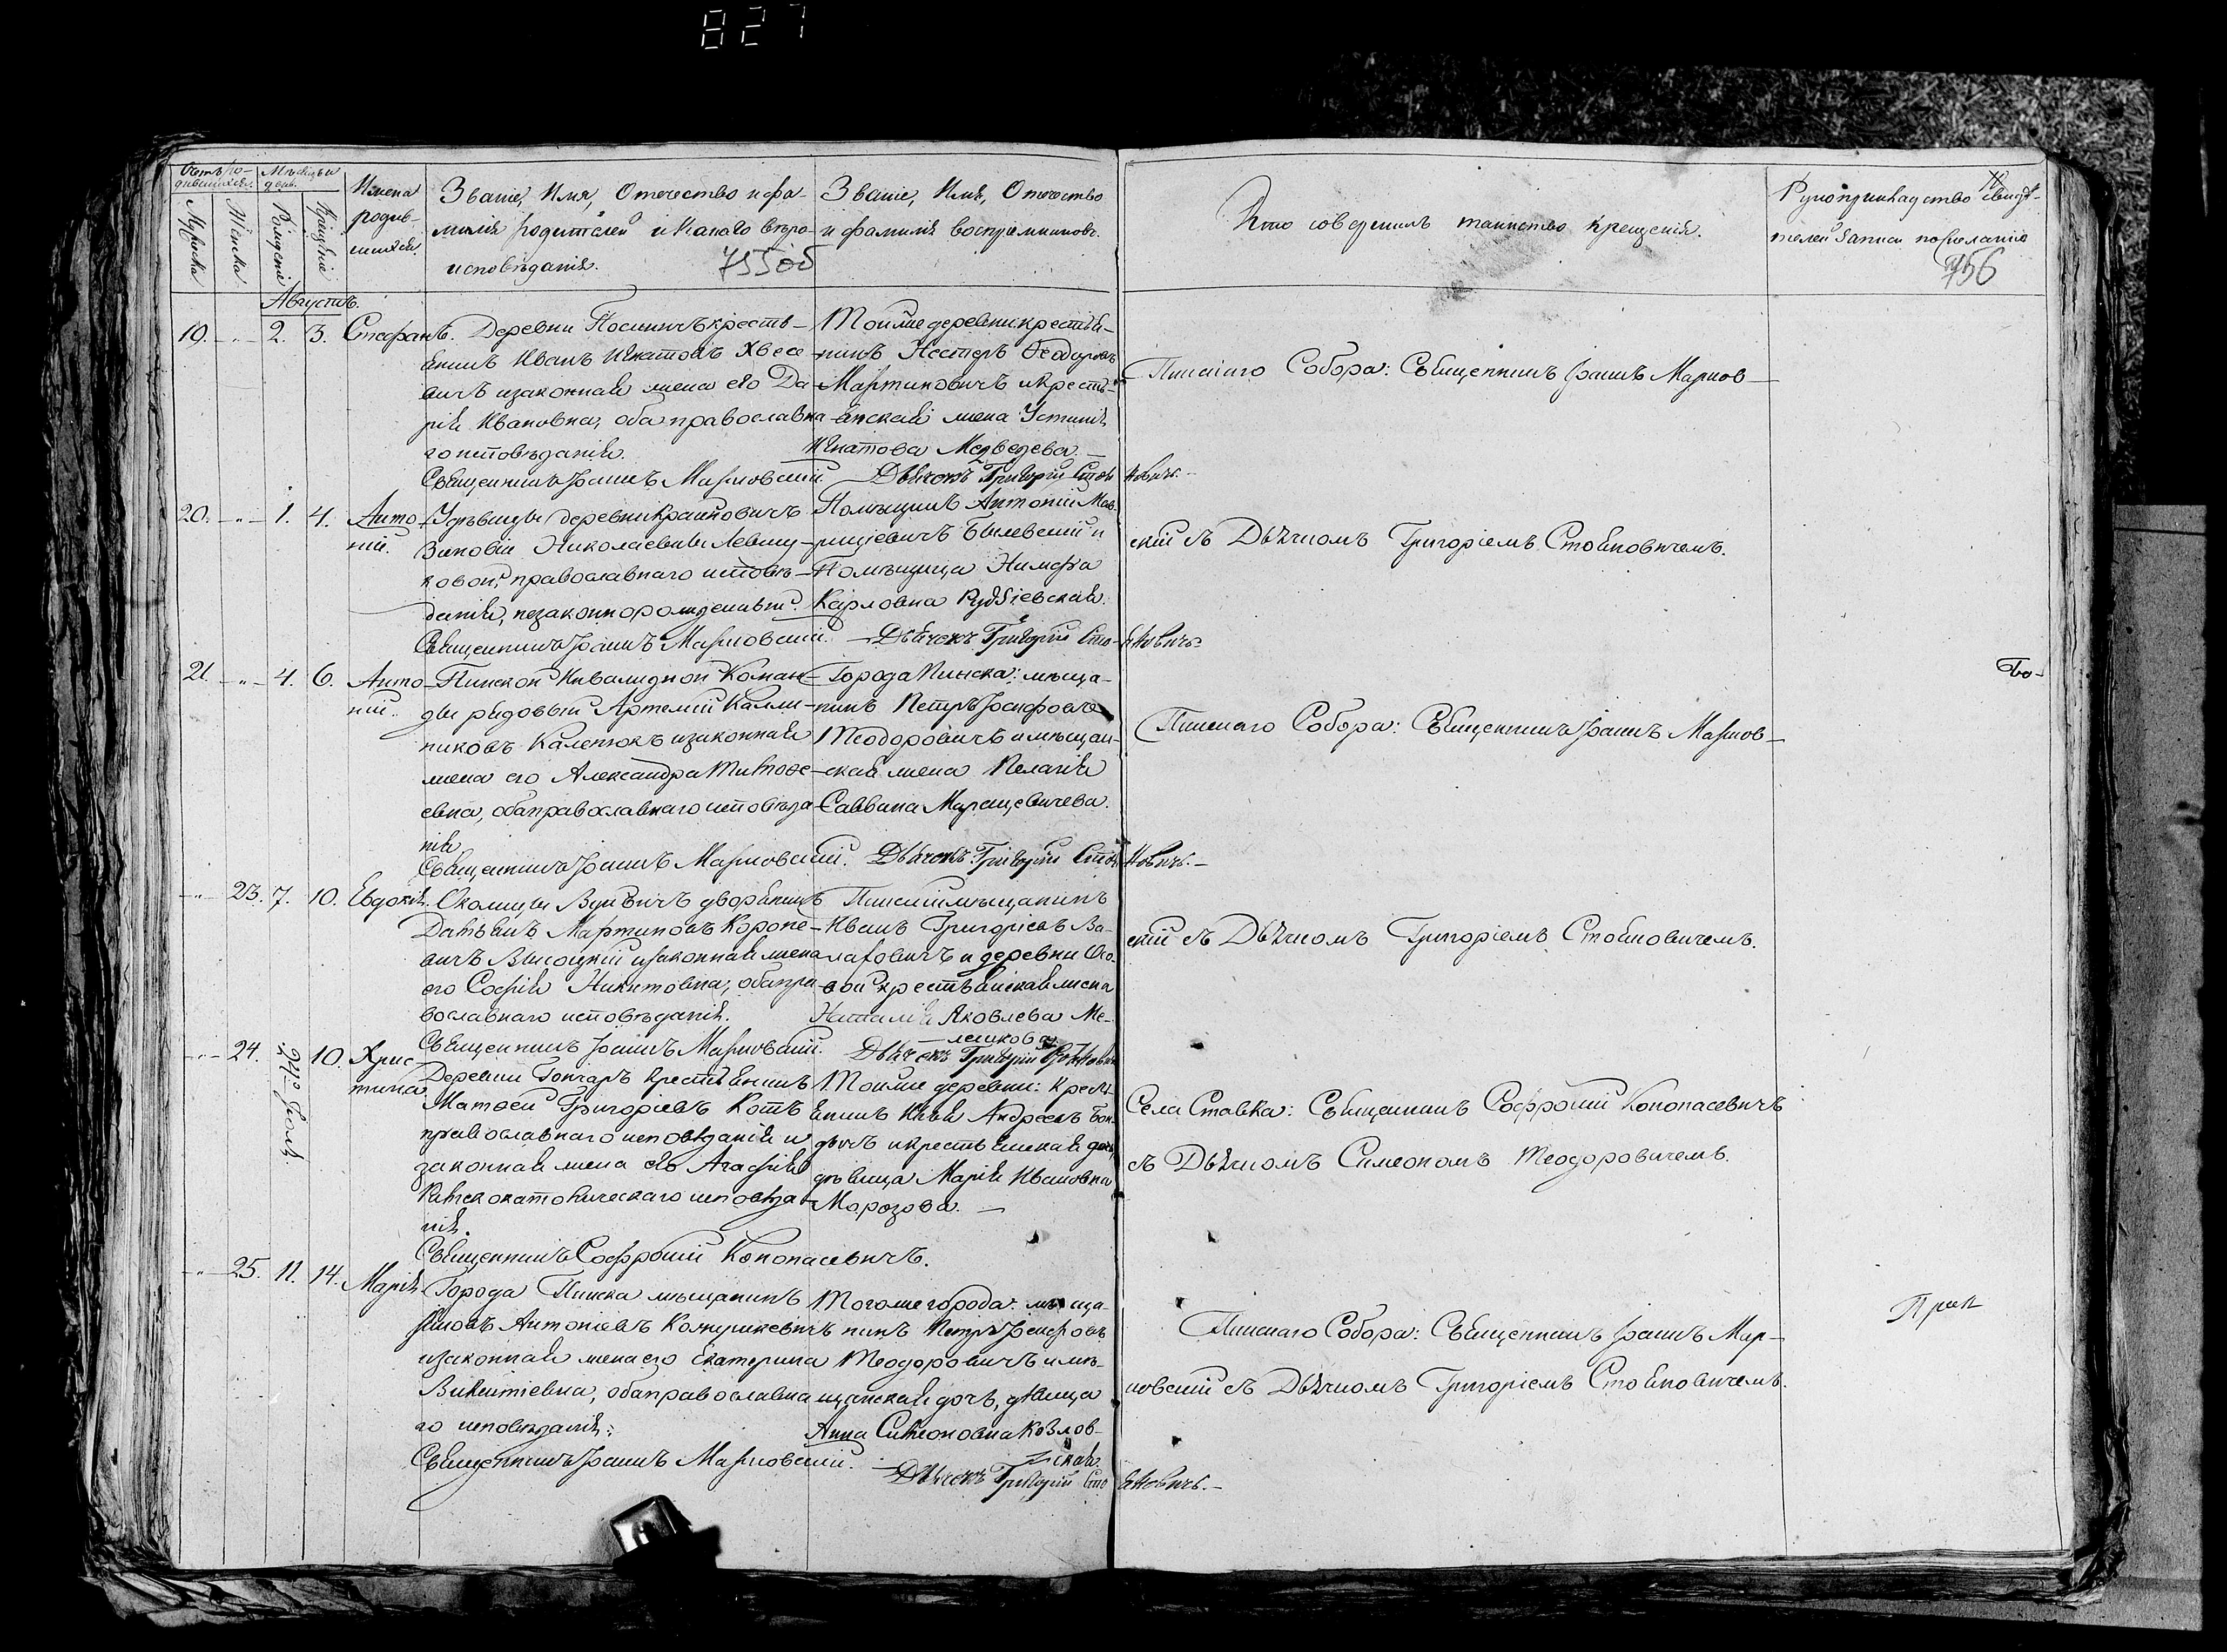 827
Счетъ ро-
дившихся.
Мѣсяцъ и
день.
Мужска
Женска
Рожденіе
Крещеніе
Имена
родив-
шихся.
Званіе, Имя, Отечество и фа-
милія родителей и какого вѣро-
исповѣданія.
755об
Званіе, Имя, Отечество
и фамилія воспріемниковъ.
Кто совершилъ таинство крещенія.
Рукоприкладство свидѣ-
телей записи по желанію
756
Августъ.
19. - „ - 2. 3. Стефанъ.
Деревни крестья-
янинъ Иванъ Игнатовъ Хвесе-
вичъ и законная жена его Да-
рія Ивановна, оба православна-
го исповѣданія.
Священникъ Іоаннъ Марновскій.
Тойже деревни крестья-
нинъ Нестеръ Ѳеодоровъ
Мартиновичъ и кресть-
янская жена Устинія
Игнатова Медведева. —
Дьячекъ Григорій Стоя
новичъ. -
Пинскаго Собора: Священникъ Іоаннъ Марнов-
скій съ Дьячкомъ Григоріемъ Стояновичемъ.
20. - „ - 1. 4. Анто-
ній.
деревни Крайновичъ
Зиновіи Николаевны Левиц-
ковой, православнаго исповѣ-
данія, незаконнорожденный.
Священникъ Іоаннъ Марновскій.
Помѣщикъ Антоній Мав-
рицiевичъ Былевскій и
Помѣщица Нимфа
Карловна Рудзіевская.
Дьячекъ Григорій Сто-
яновичъ.
21. - „ - 4. 6. Анто-
ній.
Пинской Инвалидной Коман-
ды рядовый Артемій Калли-
никовъ Каленюкъ и законная
жена его Александра Тимоѳе-
евна, оба православнаго исповѣда-
нія.
Священникъ Іоаннъ Марновскій.
Города Пинска: мѣща-
нинъ Петръ Іосифовъ
Теодоровичъ и мѣщан-
ская жена Пелагія
Саввина Марацевичева.
Дьячекъ Григорій Стоя
новичъ. -
Пинскаго Собора: Священникъ Іоаннъ Марнов-
скій съ Дьячкомъ Григоріемъ Стояновичемъ.
Бо-
- „ - 23. 7. 10. Евдокія.
Околицы Вуйвичъ дворянинъ
Даміянъ Мартиновъ Короле-
вичъ Высоцкій и законная жена
его Софія Никитовна, оба пра-
вославнаго исповѣданія.
Священникъ Іоаннъ Марновскій.
Пинскій мѣщанинъ
Иванъ Григоріевъ Ва-
лаховичъ и деревни
крестьянская жена
Наталія Яковлева Ме-
лешкова.
Дьячекъ Григорій Стояновичъ
- „ - 24. 24го Іюля. 10. Хрис-
тина
Деревни Гончаръ крестьянинъ
Матѳей Григоріевъ Котъ
православнаго исповѣданія и
законная жена его Агафія
Римскокатолическаго исповѣда-
нія.
Священникъ Софроній Конопасевичъ.
Тойже деревни: крест-
янинъ Илья Андреевъ Бон-
дычъ и крестьянская дочь
дѣвица Марія Ивановна
Морозова. —
Села Ставка: Священникъ Софроній Конопасевичъ
съ Дьячкомъ Симеономъ Теодоровичемъ.
- „ - 25. 11. 14. Марія
Города Пинска мѣщанинъ
Антоніевъ Кожушкевичъ
и законная жена его Екатерина
Викентіевна, оба православна-
го исповѣданія.
Священникъ Іоаннъ Марновскій.
Тогоже города: мѣща-
нинъ Петръ Іосифовъ
Теодоровичъ и мѣ-
щанская дочь, дѣвица
Анна Симеоновна Козлов-
ская.
Дьячекъ Григорій Сто
яновичъ. -
Пинскаго Собора: Священникъ Іоаннъ Мар-
новскій съ Дьячкомъ Григоріемъ Стояновичемъ.